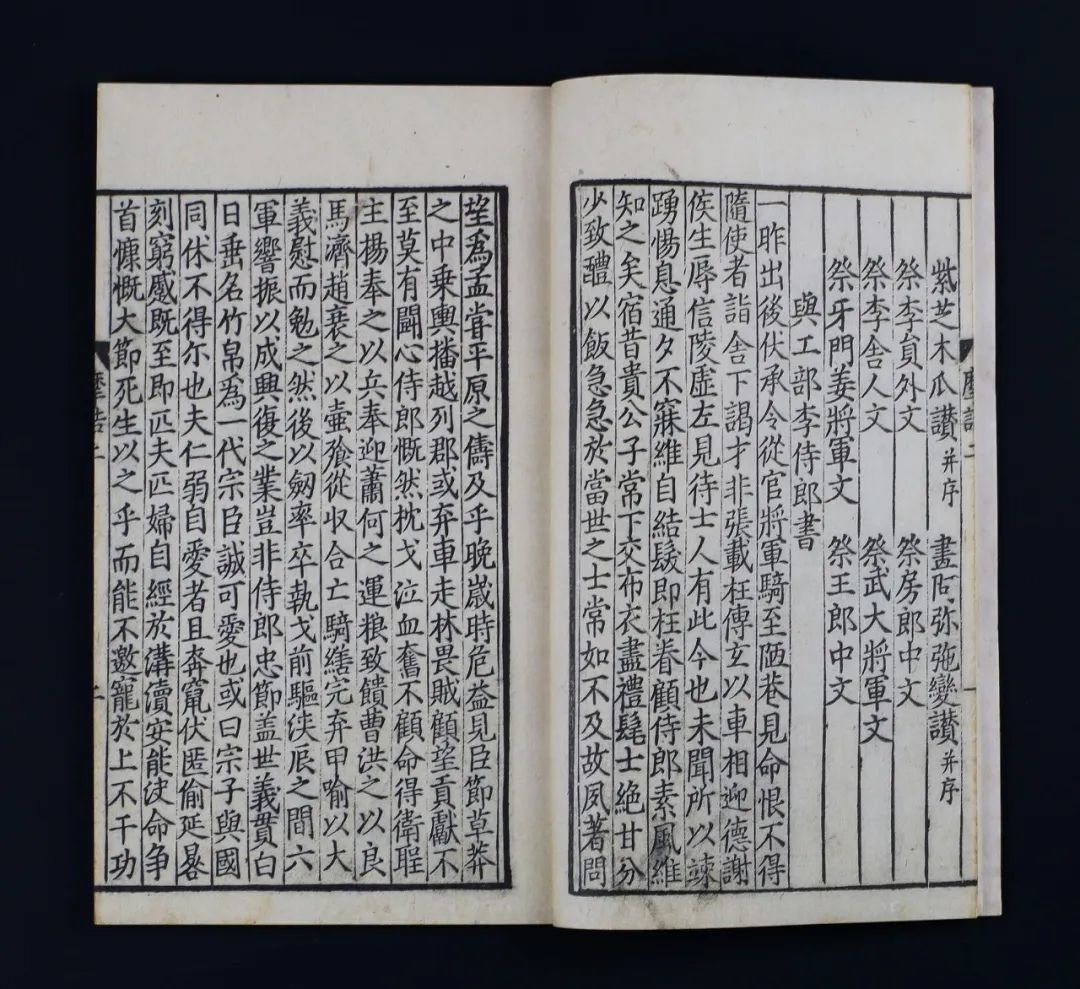 紫芝木瓜讃并序 畫阿弥陁變讃并序
祭李貟外文 祭房郎中文
祭李舎人文 祭武大將軍文
祭牙門姜將軍文 祭王郎中文
與工部李侍郎書
一昨出後伏承令從官將軍騎至陋巷見命恨不得
隨使者詣舎下謁才非張載枉傳玄以車相迎德謝
侯生辱信陵虛左見待士人有此今也未聞所以竦
踴惕息通夕不寐維自結髮即枉眷顧侍郎素風維
知之矣宿昔貴公子常下交布衣盡禮髦士絶甘分
少致醴以飯急急於當世之士常如不及故夙著問
望爲孟甞平原之儔及乎晚歳時危益見臣節草莽
之中乗輿播越列郡或弃車走林畏賊顧望貢獻不
至莫有鬪心侍郎慨然枕戈泣血奮不顧命得衛聖
主楊奉之以兵奉迎蕭何之運粮致饋曹洪之以良
馬濟趙衰之以壷飱從収合亡騎繕完弃甲喻以大
義慰而勉之然後以劒率卒執戈前驅浹辰之間六
軍響振以成興復之業豈非侍郎忠節盖世義貫白
日垂名竹帛爲一代宗臣誠可愛也或曰宗子與國
同休不得尓也夫仁弱自愛者且奔竄伏匿偷延晷
刻窮慼既至即匹夫匹婦自經於溝瀆安能决命争
首慷慨大節死生以之乎而能不邀寵於上不干功